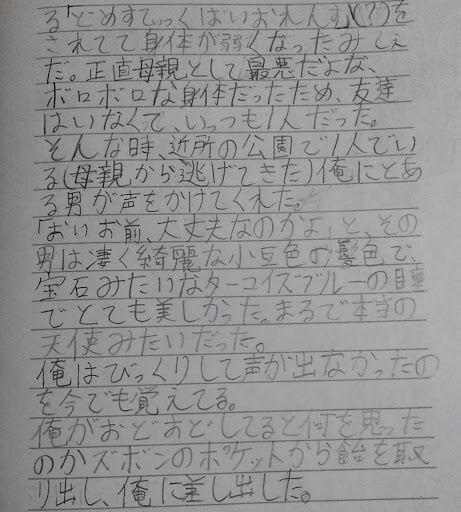 る「どめすてぃっくばいおれんす」(?)を
されてて身体が弱くなったみてぇ
だ。正直母親として最悪だよな、
ボロボロな身体だったため、友達
はいなくて、いっつも1人だった。
そんな時、近所の公園で1人でい
る(母親から逃げてきた)俺にとあ
る男が声をかけてくれた。
「おいお前、大丈夫なのかよ」と、その
男は凄く綺麗な小豆色の髪色で、
宝石みたいなターコイズブルーの瞳
でとても美しかった。まるで本当の
天使みたいだった。
俺はびっくりして声が出なかったの
を今でも覚えてる。
俺がおどおどしてると何を思った
のかズボンのポケットから飴を取
り出し、俺に差し出した。